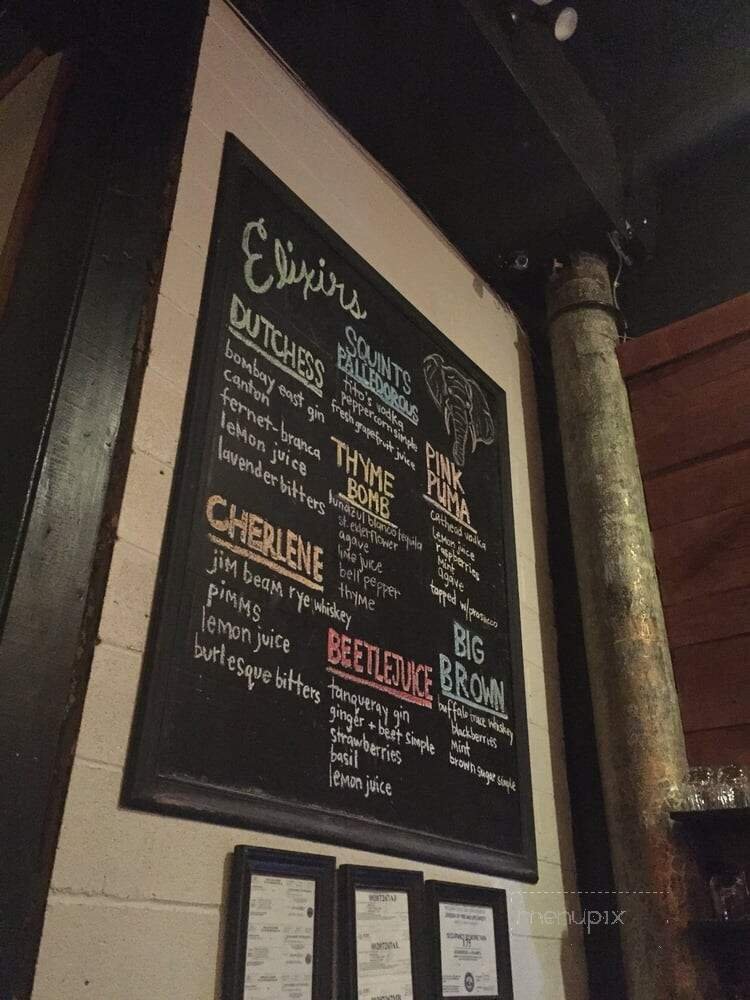 Elixirs
DUTCHESS
bombay east gin
canton
fernet-branca
lemon juice
lavender bitters
CHERLENE
jim beam rye whiskey
pimms
lemon juice
burlesque bitters
SQUINTS
PALLEDOROUS
tito's vodka
peppercorn simple
fresh grapefruit juice
THYME
BOMB
lunazul blanco tequila
st. elderflower
agave
lime juice
bell pepper
thyme
BEETLEJUICE
tanqueray gin
ginger + beet simple
strawberries
basil
lemon juice
PINK
PUMA
cathead vodka
lemon juice
raspberries
mint
agave
topped w/prosecco
BIG
BROWN
buffalo trace whiskey
blackberries
mint
brown sugar simple
menupix